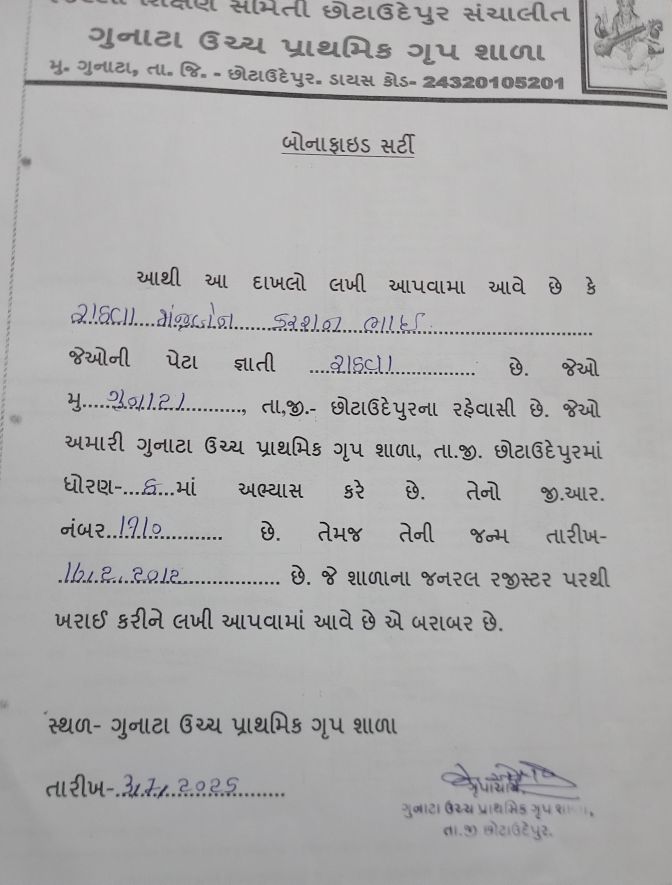 શિક્ષણ સમિતી છોટાઉદેપુર સંચાલીત
ગુનાટા ઉચ્ચ પ્રાથમિક ગૃપ શાળા
મુ. ગુનાટા, તા. જિ. - છોટાઉદેપુર. ડાયસ કોડ- 24320105201
બોનાફાઇડ સર્ટી
આથી આ દાખલો લખી આપવામા આવે છે કે
રાઠવા
જેઓની પેટા જ્ઞાતી ....રાઠવા.............. છે. જેઓ
મુ.....ગુનાટા............, તા,જી.- છોટાઉદેપુરના રહેવાસી છે. જેઓ
અમારી ગુનાટા ઉચ્ચ પ્રાથમિક ગૃપ શાળા, તા.જી. છોટાઉદેપુરમાં
ધોરણ-...૬...માં અભ્યાસ કરે છે. તેનો જી.આર.
નંબર..૧૯૧૦............ છે. તેમજ તેની જન્મ તારીખ-
..................... છે. જે શાળાના જનરલ રજીસ્ટર પરથી
ખરાઈ કરીને લખી આપવામાં આવે છે એ બરાબર છે.
સ્થળ- ગુનાટા ઉચ્ચ પ્રાથમિક ગૃપ શાળા
તારીખ-.
ગુનાટા ઉચ્ચ પ્રાથમિક ગૃપ
તા.જી છોટાઉદેપુર.